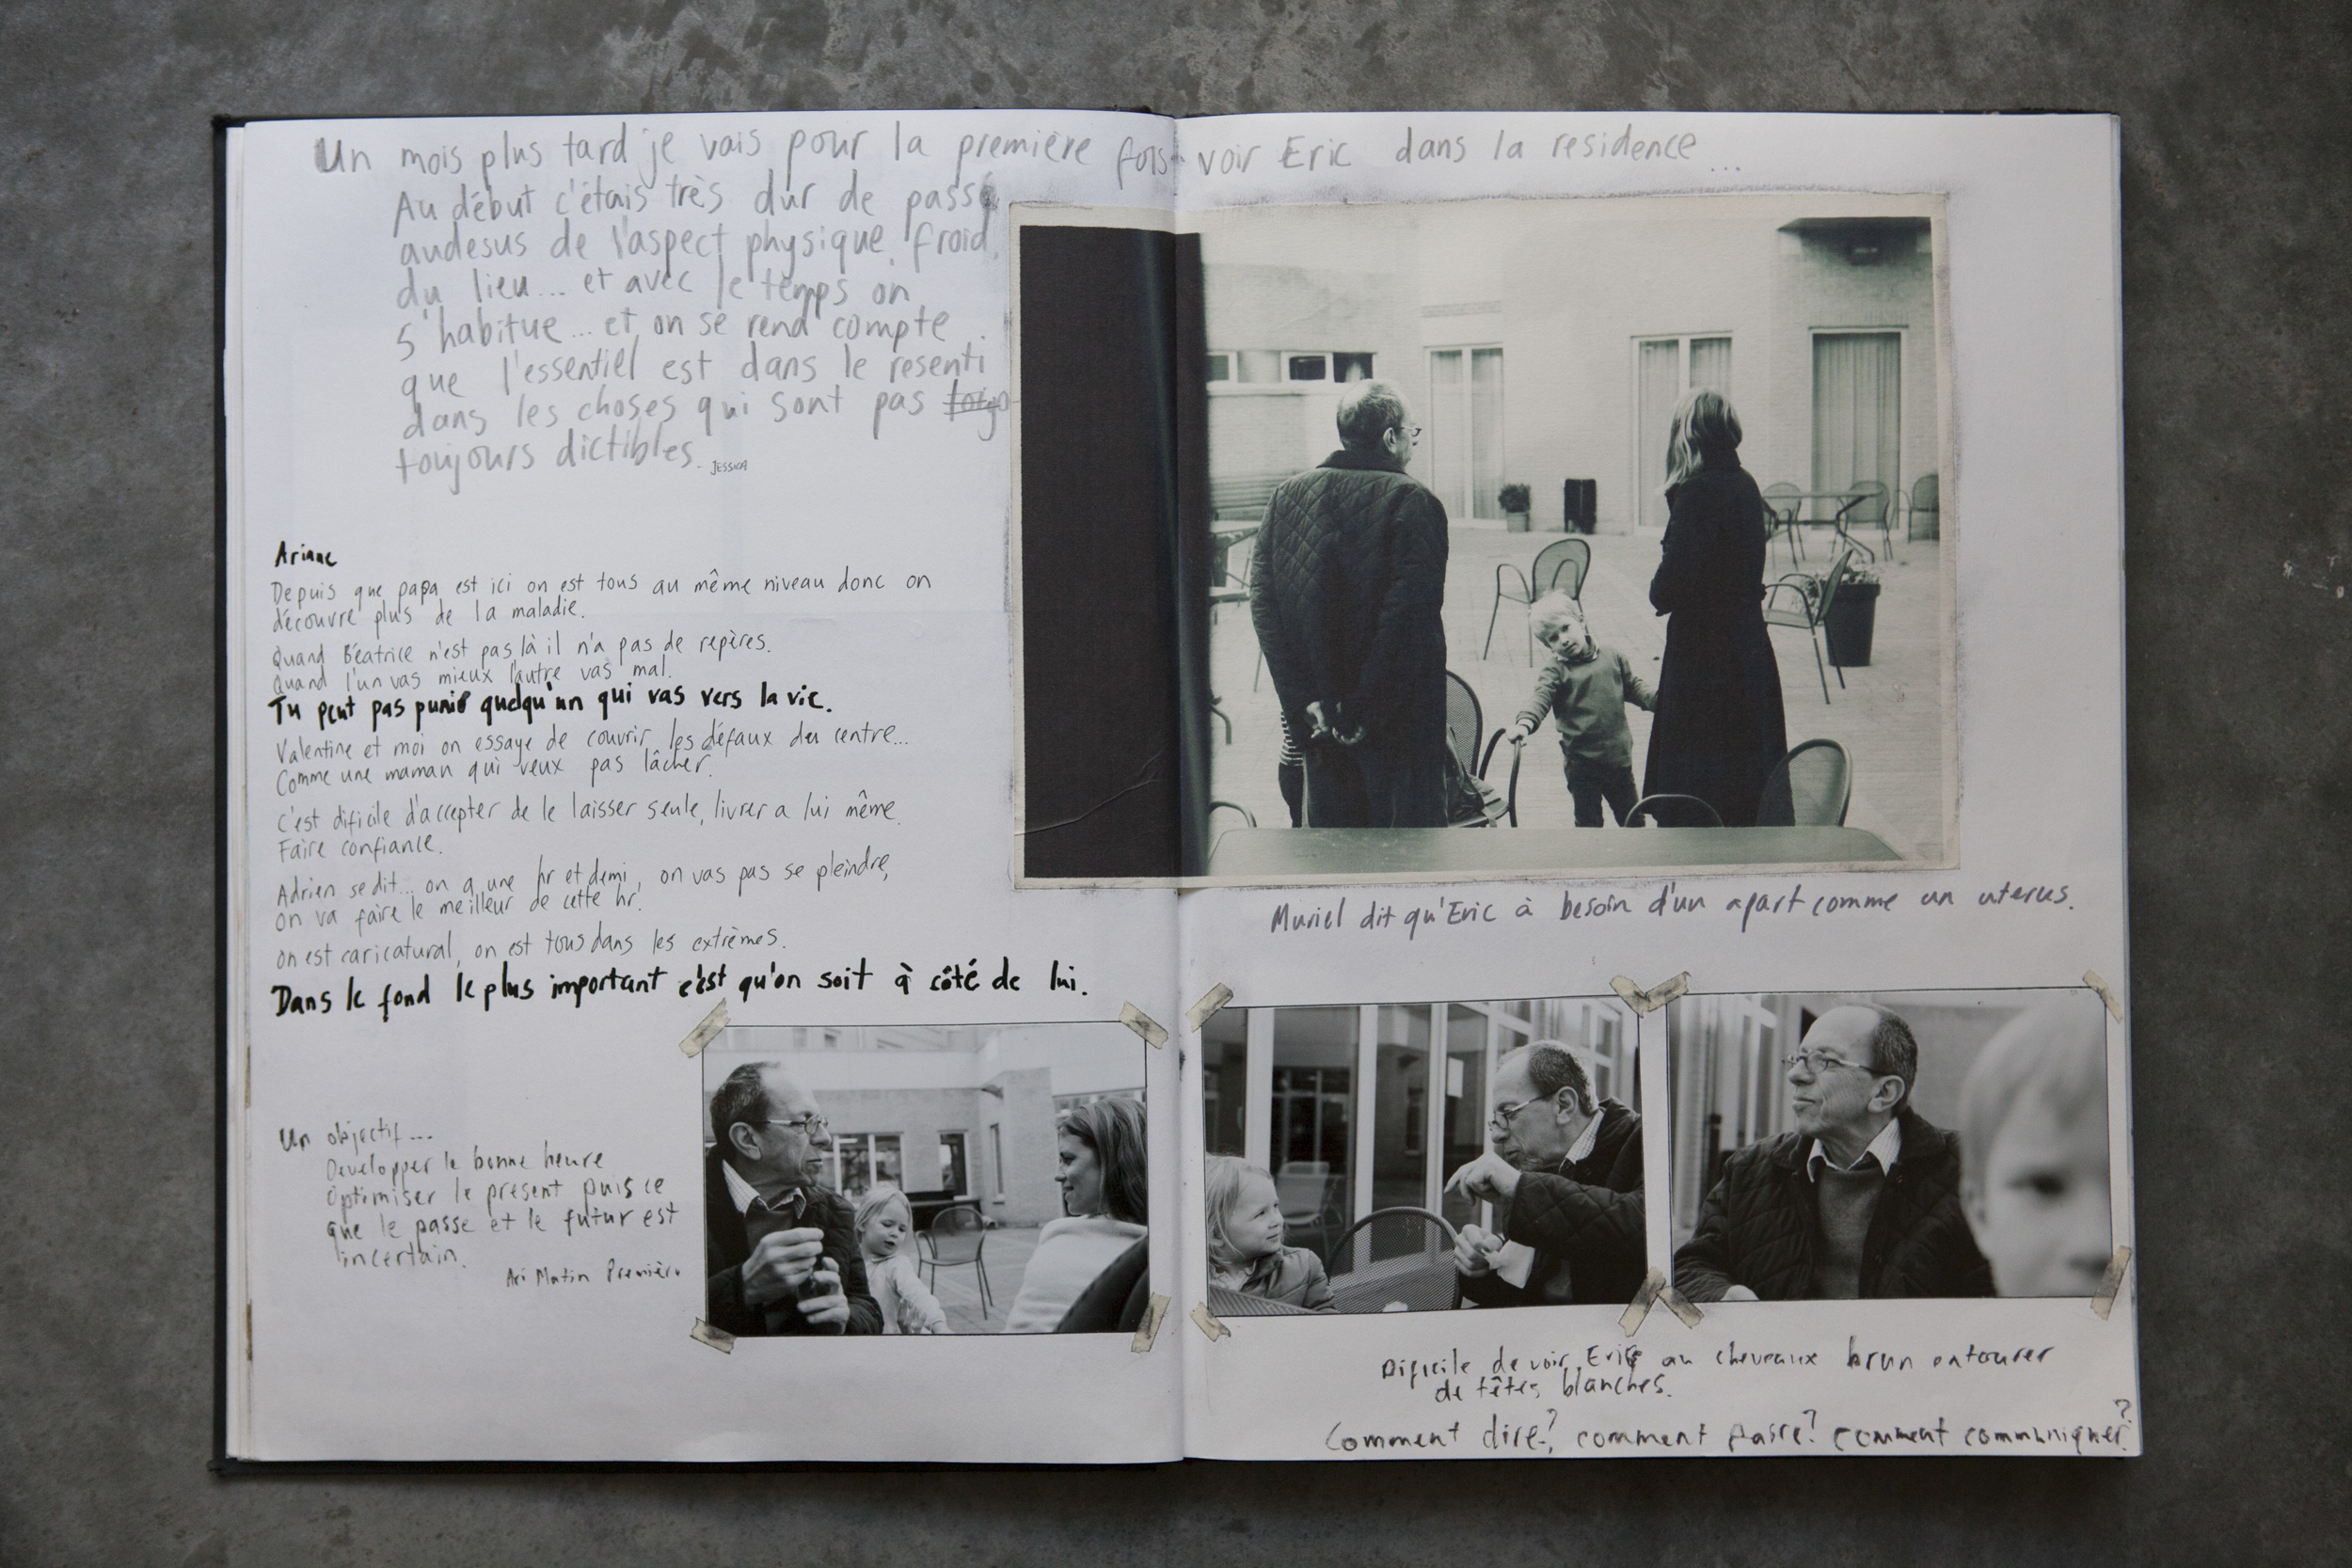 Un mois plus tard je vais pour la première fois voir Eric dans la residence...
Au début c'étais très dur de passé
audesus de l'aspect physique, froid,
du lieu... et avec le temps on
s'habitue... et on se rend compte
que l'essentiel est dans le resenti
dans les choses qui sont pas
toujours dictibles.. JESSICA
Ariane
Depuis que papa est ici on est tous au même niveau donc on
découvre plus de la maladie.
Quand Béatrice n'est pas là il n'a pas de repères.
Quand l'un vas mieux l'autre vas mal.
Tu peut pas punir quelqu'un qui vas vers la vie.
Valentine et moi on essaye de couvrir les défaux du centre...
Comme une maman qui veux pas lâcher.
C'est dificile d'accepter de le laisser seule, livrer a lui même.
Faire confiance.
Adrien se dit... on a une hr et demi, on vas pas se pleindre,
on va faire le meilleur de cette hr.
On est caricatural, on est tous dans les extrêmes.
Dans le fond le plus important c'est qu'on soit à côté de lui.
Muriel dit qu'Eric à besoin d'un apart comme un uterus.
Un objectif...
Developper le bonne heure
Optimiser le present puisce
que le passe et le futur est
incertain.
Ari Matin Première
Dificile de voir Eric au cheveaux brun entourer
de têtes blanches.
Comment dire? comment faire? comment communiquer?